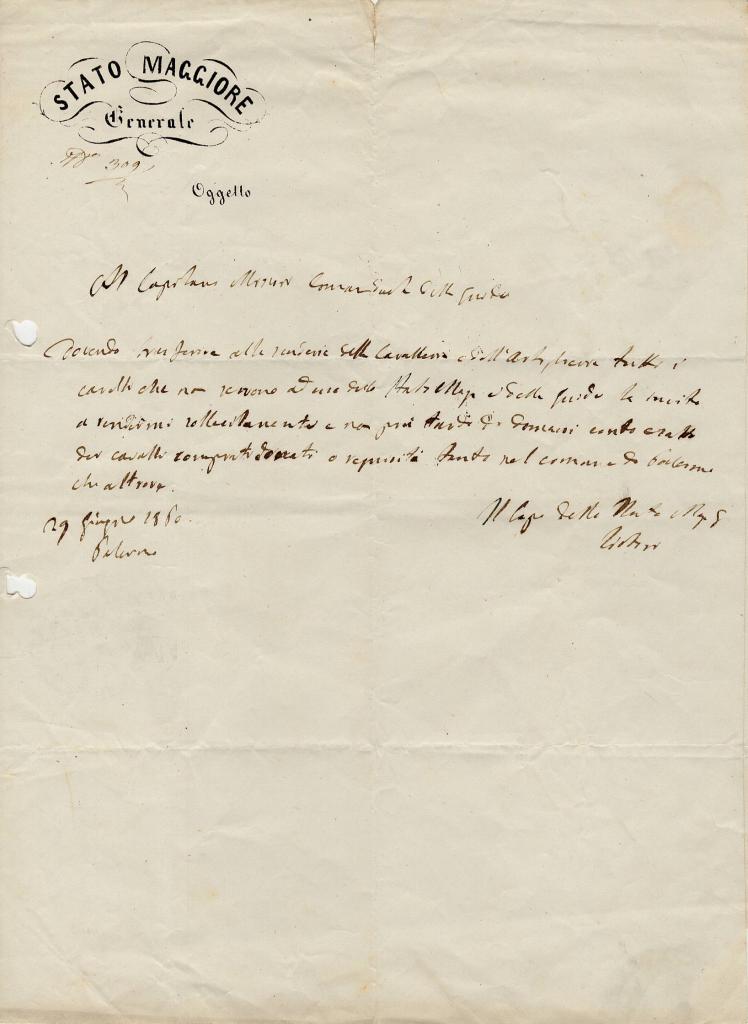 STATO MAGGIORE
Generale
N° 309
Oggetto
Al Capitano Missori Comandante delle Guide
Dovendo trasferire alle scuderie della Cavalleria e dell'Artiglieria tutti i
cavalli che non servono ad uso dello Stato Magg. e delle Guide la invito
a rendermi sollecitamente e non più tardi di domani conto esatto
dei cavalli comprati donati o requisiti tanto nel comune di Palermo
che altrove.
29 giugno 1860.
Palermo
Il Capo dello Stato Magg